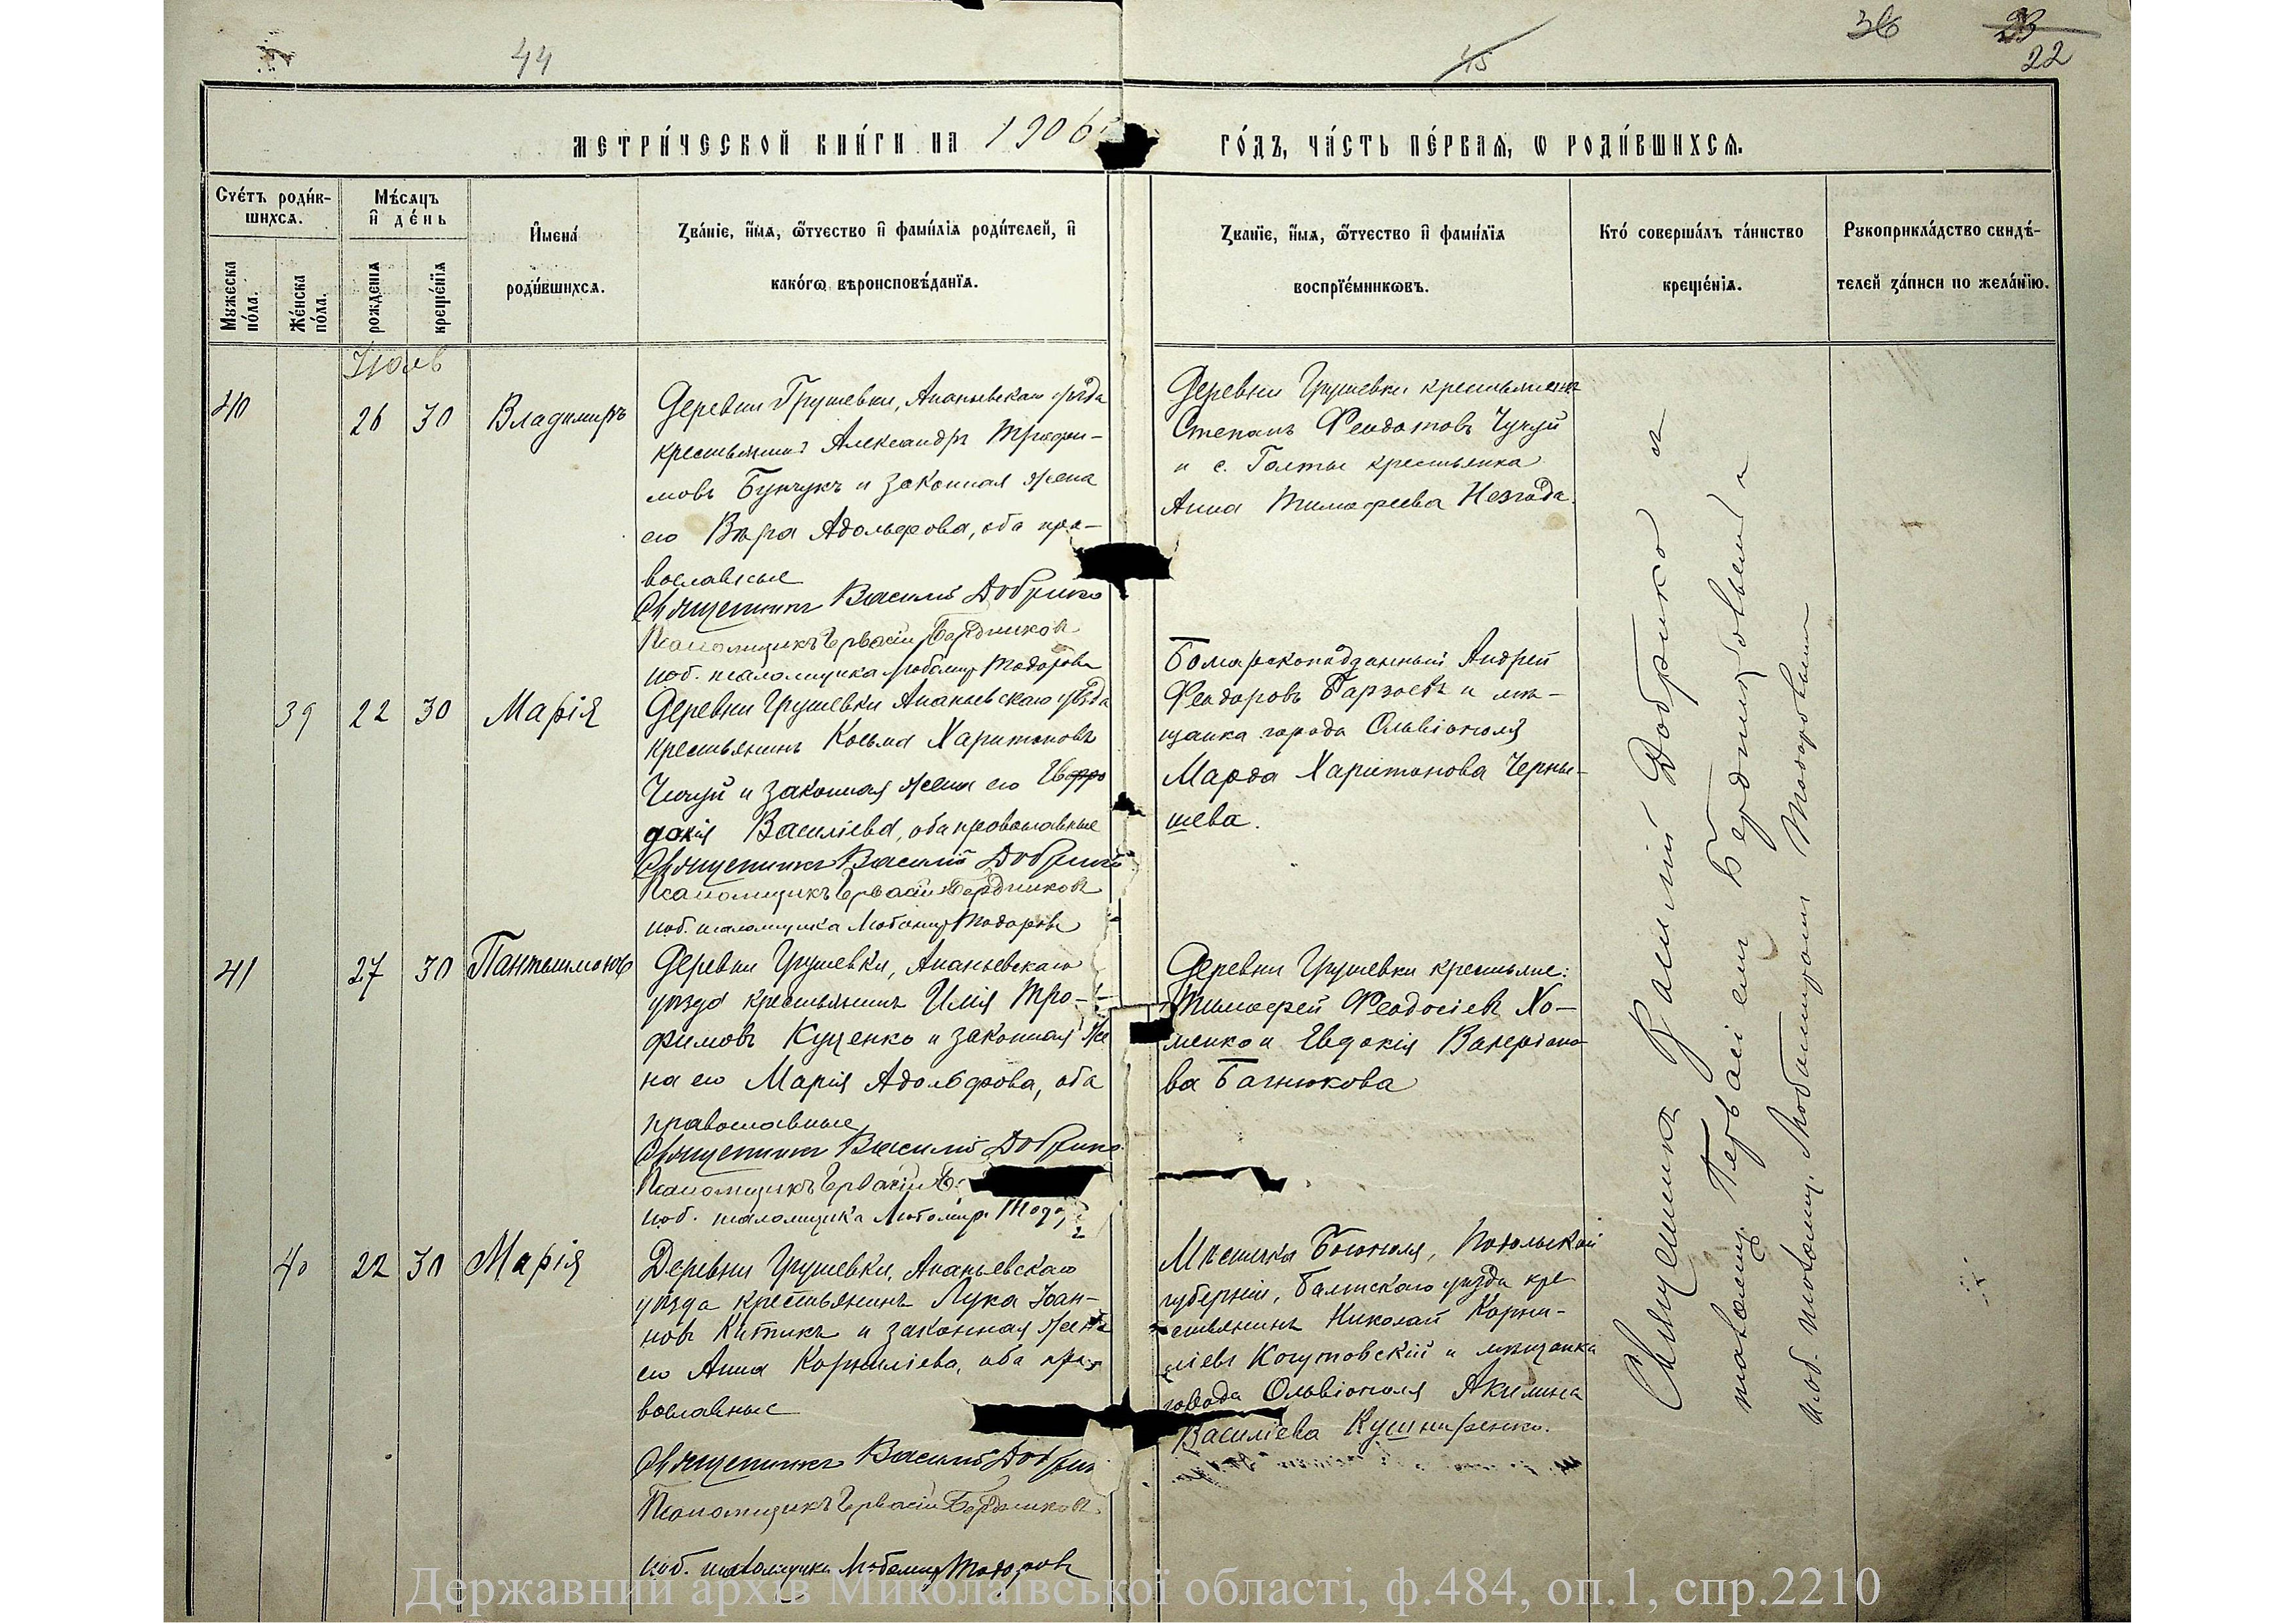 44
45
36
23
22
МЕТРИ́ЧЕСКОЙ КНИ́ГИ НА 1906
ГО́ДЪ, ЧА́СТЬ ПЕ́РВАѦ, Ѡ РОДИ́ВШИХСѦ.
Сче́тъ роди́в-
шихсѧ.
Мꙋжеска
по́ла.
Же́нска
по́ла.
Мѣ́сѧцъ
и҆ де́нь
рожденїѧ
креще́нїѧ
И҆мена́
роди́вшихсѧ.
Зва́нїе, и҆́мѧ, ѻ҆́тчество и҆ фами́лїѧ роди́телей, и҆
како́гѡ вѣроисповѣ́данїѧ.
Зва́нїе, и҆́мѧ, ѻ҆́тчество и҆ фами́лїѧ
воспрїе́мникѡвъ.
Кто́ соверша́лъ та́инство
креще́нїѧ.
Рꙋкоприкла́дство свидѣ́-
телей за́писи по жела́нїю.
Июль
40
26
30
Владимиръ
Деревни Грушевки, Ананьевскаго уѣзда
крестьянинъ Александръ Трофи-
мовъ Бунчукъ и законная жена
его Вѣра Адольфова, оба пра-
вославные
Священникъ Василій Добрико
Псаломщикъ Гервасій Бердниковъ
исоб. псаломщика Любомиръ Тодоровъ
Деревни Грушевки крестьянинъ
Степанъ Феодотовъ Чучуй
и с. Голты крестьянка
Анна Тимофеева Незгода.
39
22
30
Марія
Деревни Грушевки Ананьевскаго уѣзда
крестьянинъ Косьма Харитоновъ
Чучуй и законная жена его Ев
докія Василіева, оба православные
Священникъ Василій Добрико
Псаломщикъ Гервасій Бердниковъ
исоб. псаломщика Любомиръ Тодоровъ
Болгарскоподданный Андрей
Феодоровъ и мѣ-
щанка города Ольвіополя
Марфа Харитонова Черны-
шева.
41
27
30
Пантелимонъ
Деревни Грушевки, Ананьевскаго
уѣзда крестьянинъ Илія Тро-
фимовъ Куценко и законная же
на его Марія Адольфова, оба
православные
Священникъ Василій Добрико
Псаломщикъ Гервасій Б
исоб. псаломщика Любомиръ Тодо
Деревни Грушевки крестьяне:
Тимофей Феодосіевъ Хо-
менко и Евдокія Валеріано
ва Багнюкова
40
22
30
Марія
Деревни Грушевки, Ананьевскаго
уѣзда крестьянинъ Лука Іоан-
новъ Китикъ и законная жена
его Анна Корниліева, оба пра-
вославные
Священникъ Василій Добрик
Псаломщикъ Гервасій Бердниковъ.
исоб. псаломщика Любомиръ Тодоровъ
Мѣстечка Богополя, Подольской
губерніи, Балтскаго уѣзда кре
стьянинъ Николай Корни-
ліевъ Когутовскій и мѣщанка
города Ольвіополя Акилина
Василіева Кушниренко.
Священникъ Василій Добрико съ
псаломщ. Гервасіемъ Бердниковымъ и
исоб. псаломщ. Любомиромъ Тодоровымъ
Державний архів Миколаївської області, ф.484, оп.1, спр.2210